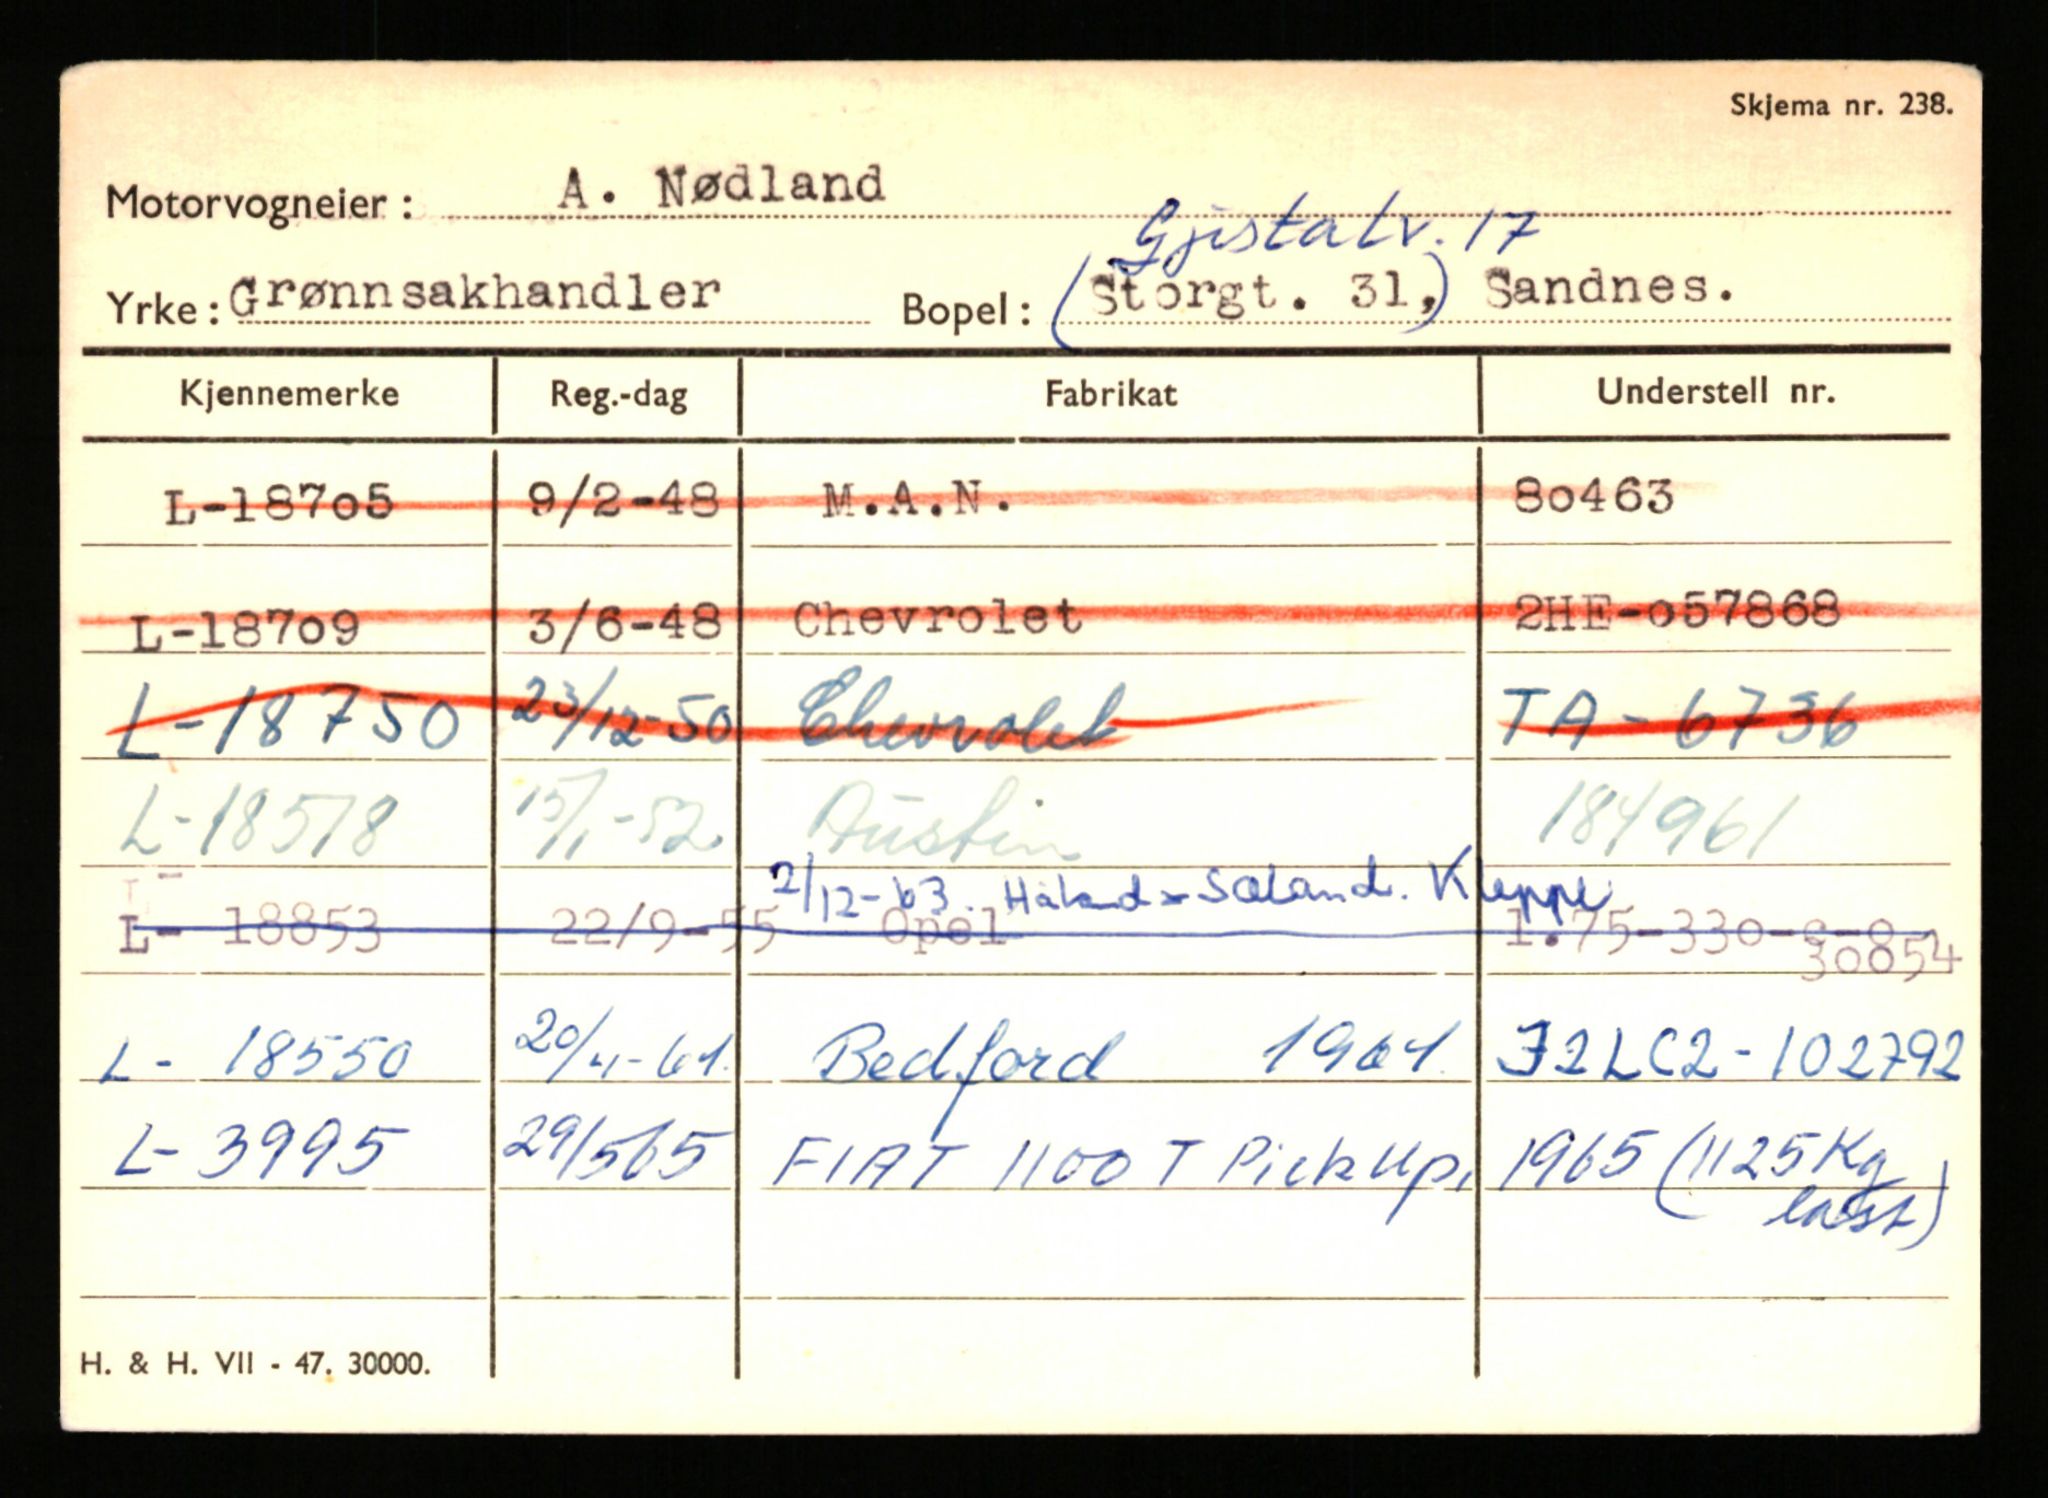 Skjema nr. 238.
Motorvogneier: A. Nødland
Gjistalv. 17
Yrke: Grønnsakhandler Bopel: (Storgt. 31,) Sandnes.
Kjennemerke Reg.-dag Fabrikat Understell nr.
L-18705 9/2-48 M.A.N. 80463
L-18709 3/6-48 Chevrolet 2HE-o57868
L-18750 23/12-50 Chevrolet TA-6736
L-18518 15/1-52. Austin 184961
2/12-63. Håland Sæland. Kleppe
L- 18853 22/9-55 Opel 1.75-330-o-o
30854
L- 18550 20/4-61. Bedford 1961. J2LC2-102792
L- 3995 29/565 FIAT 1100 T Pick Up, 1965 (1125 Kg
last)
H. & H. VII - 47. 30000.